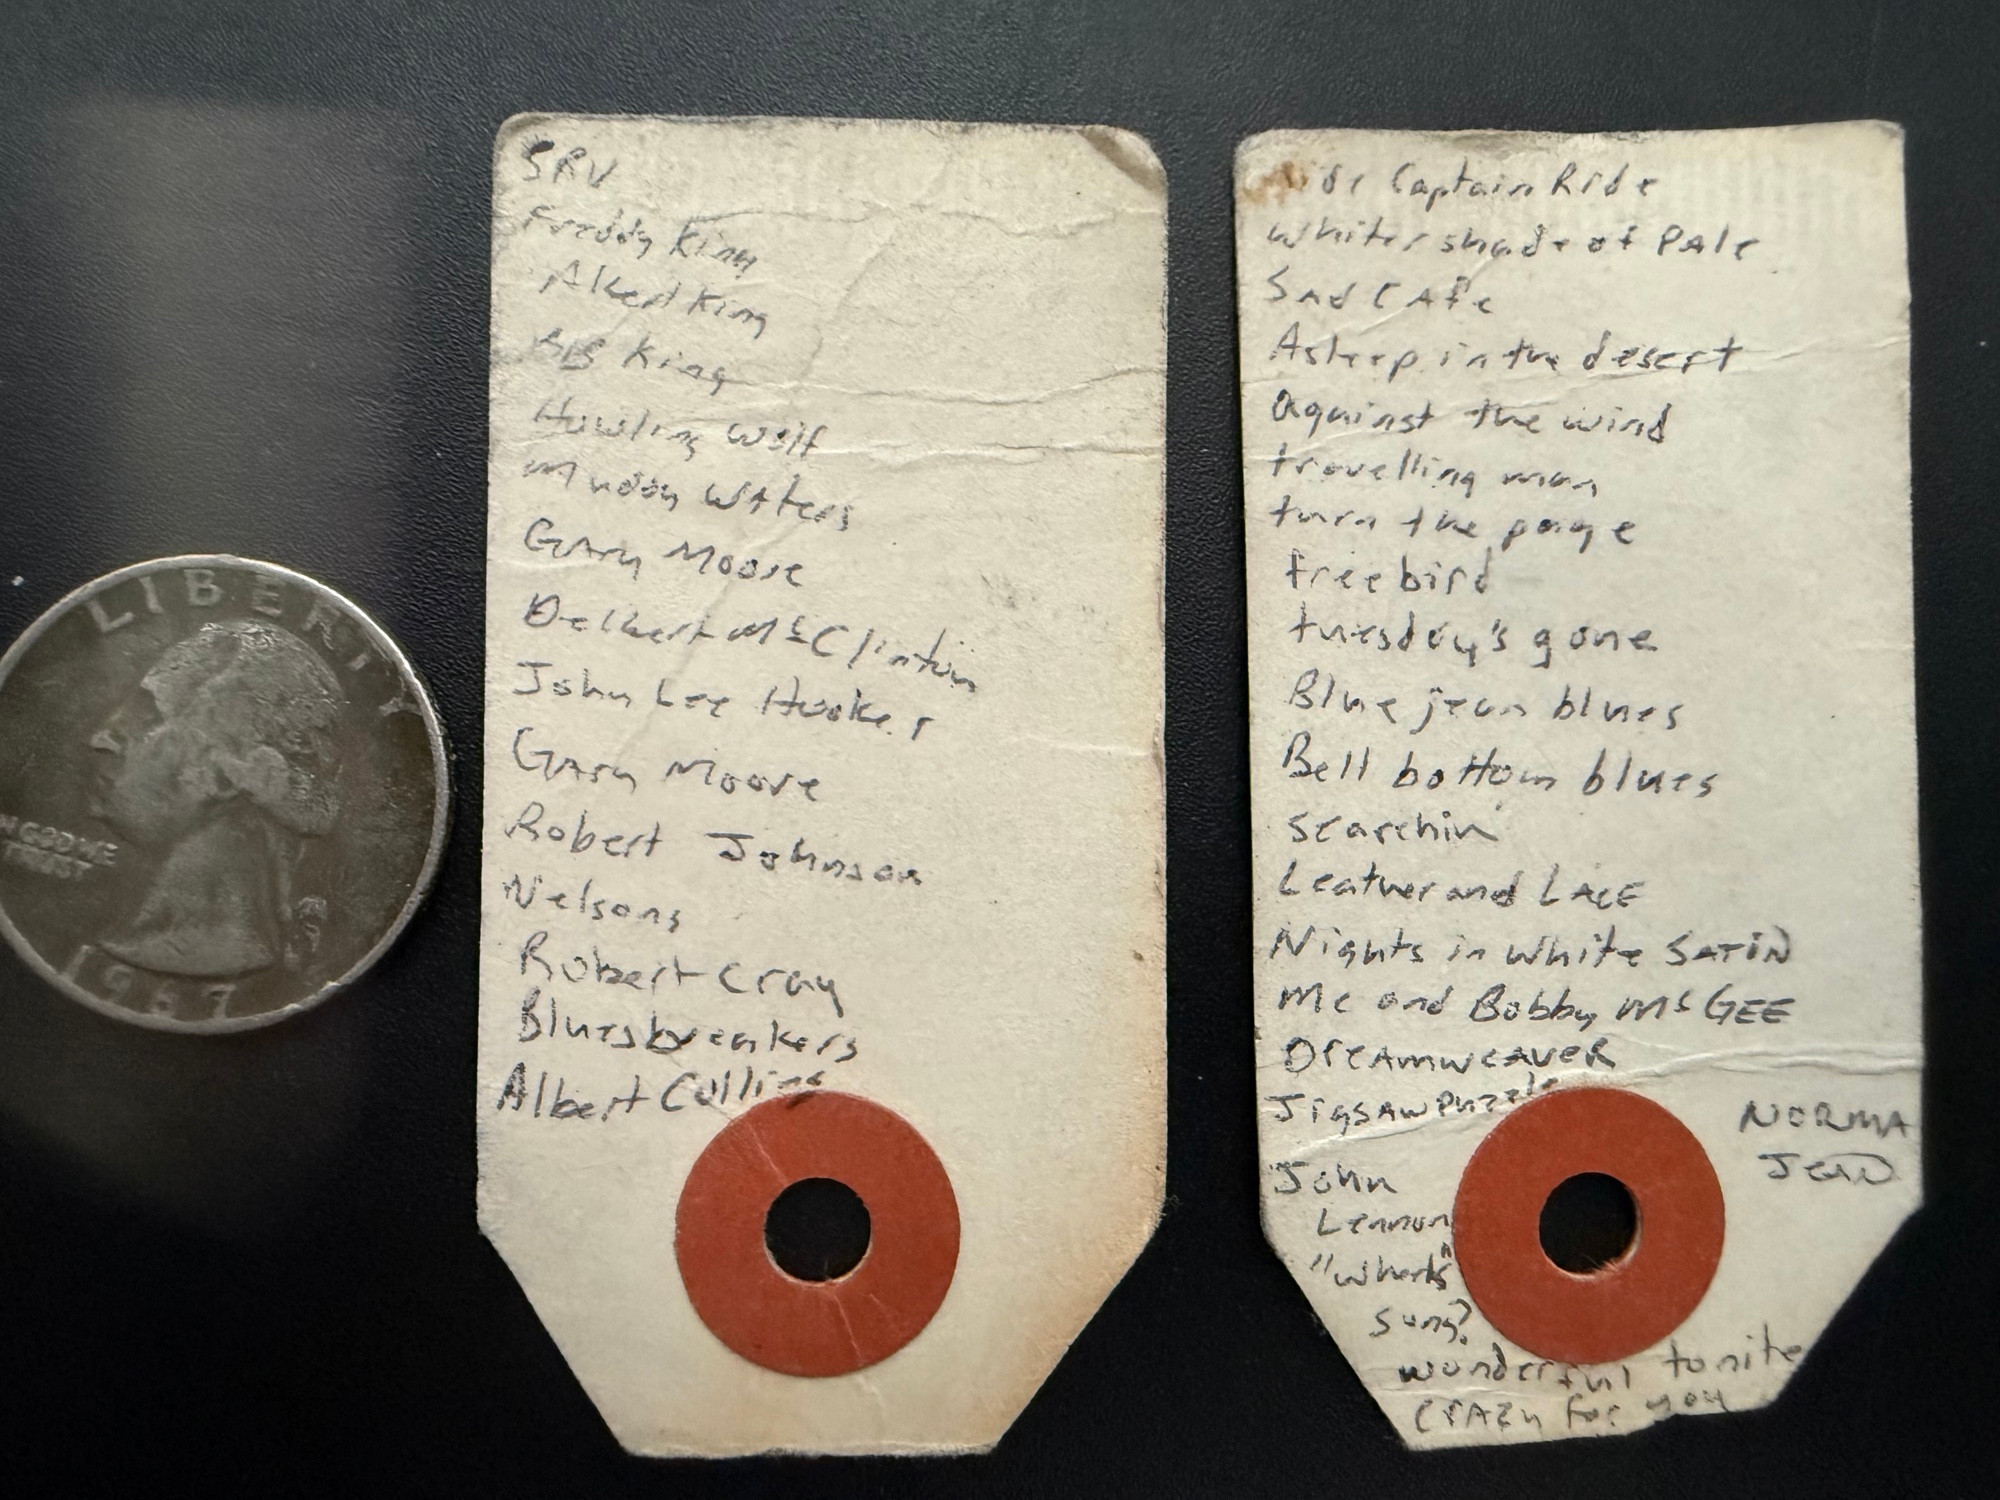 LIBERTY
IN GOD WE
TRUST
1967
SRV
Freddy King
Albert King
BB King
Howling Wolf
Muddy Waters
Gary Moore
Delbert McClinton
John Lee Hooker
Gary Moore
Robert Johnson
Nelsons
Robert Cray
Bluesbreakers
Albert Collins
Captain Ride
whiter shade of PAle
SAd CAfe
Asleep in the desert
against the wind
travelling man
turn the page
free bird
tuesday's gone
Blue jean blues
Bell bottom blues
searchin
Leather and LACE
Nights in white SATIN
Me and Bobby McGEE
DreAmweAVER
JigsAw Puzzle
NORMA
Jean
John
Lennon
"wheels"
song?
wonderful tonite
CrAzy for you